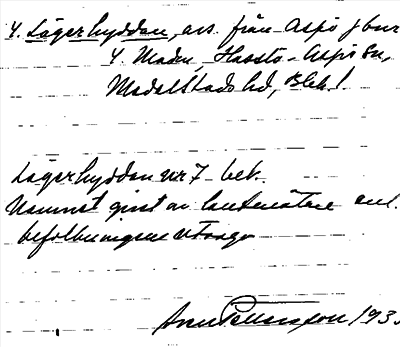 4. Lägerhyddan, ers. från Aspö
4. Madn, Hasslö - Aspö sn,
Medelstads hd, Blek. l.
Lägerhyddan nr 7 bek.
Namnet givet av lantmätare enl.
befolkningens utsago
Pettersson, 193